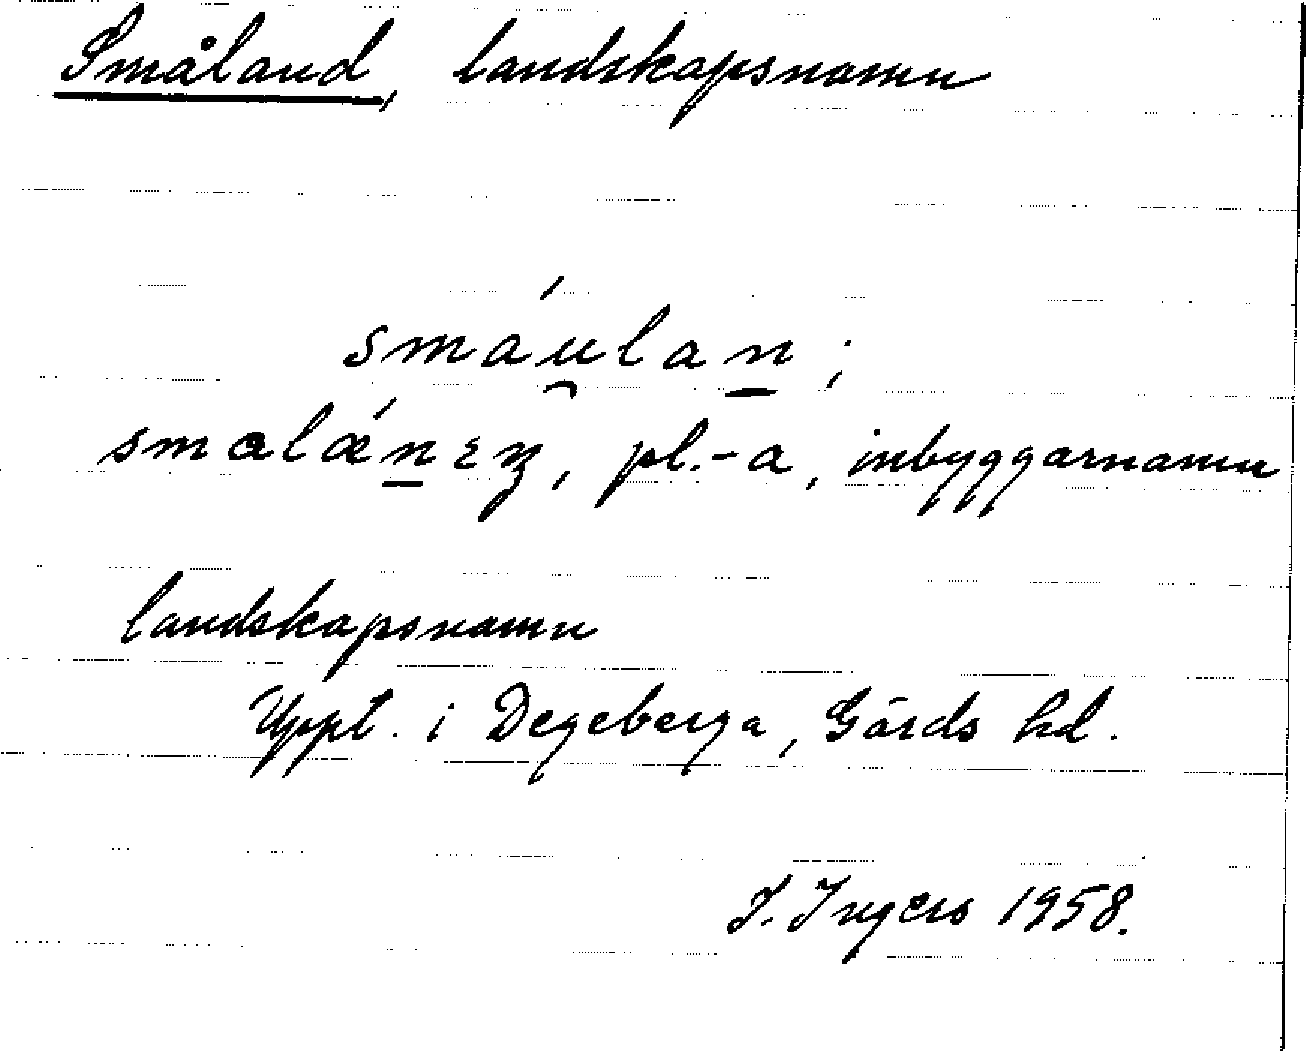 Småland, landskapsnamn
smáu̯lan̲;
smalǽn̲ɛʒ, pl. -a, inbyggarnamn
landskapsnamn
Uppt. i Degeberga, Gärds hd.
I. Ingers 1958.